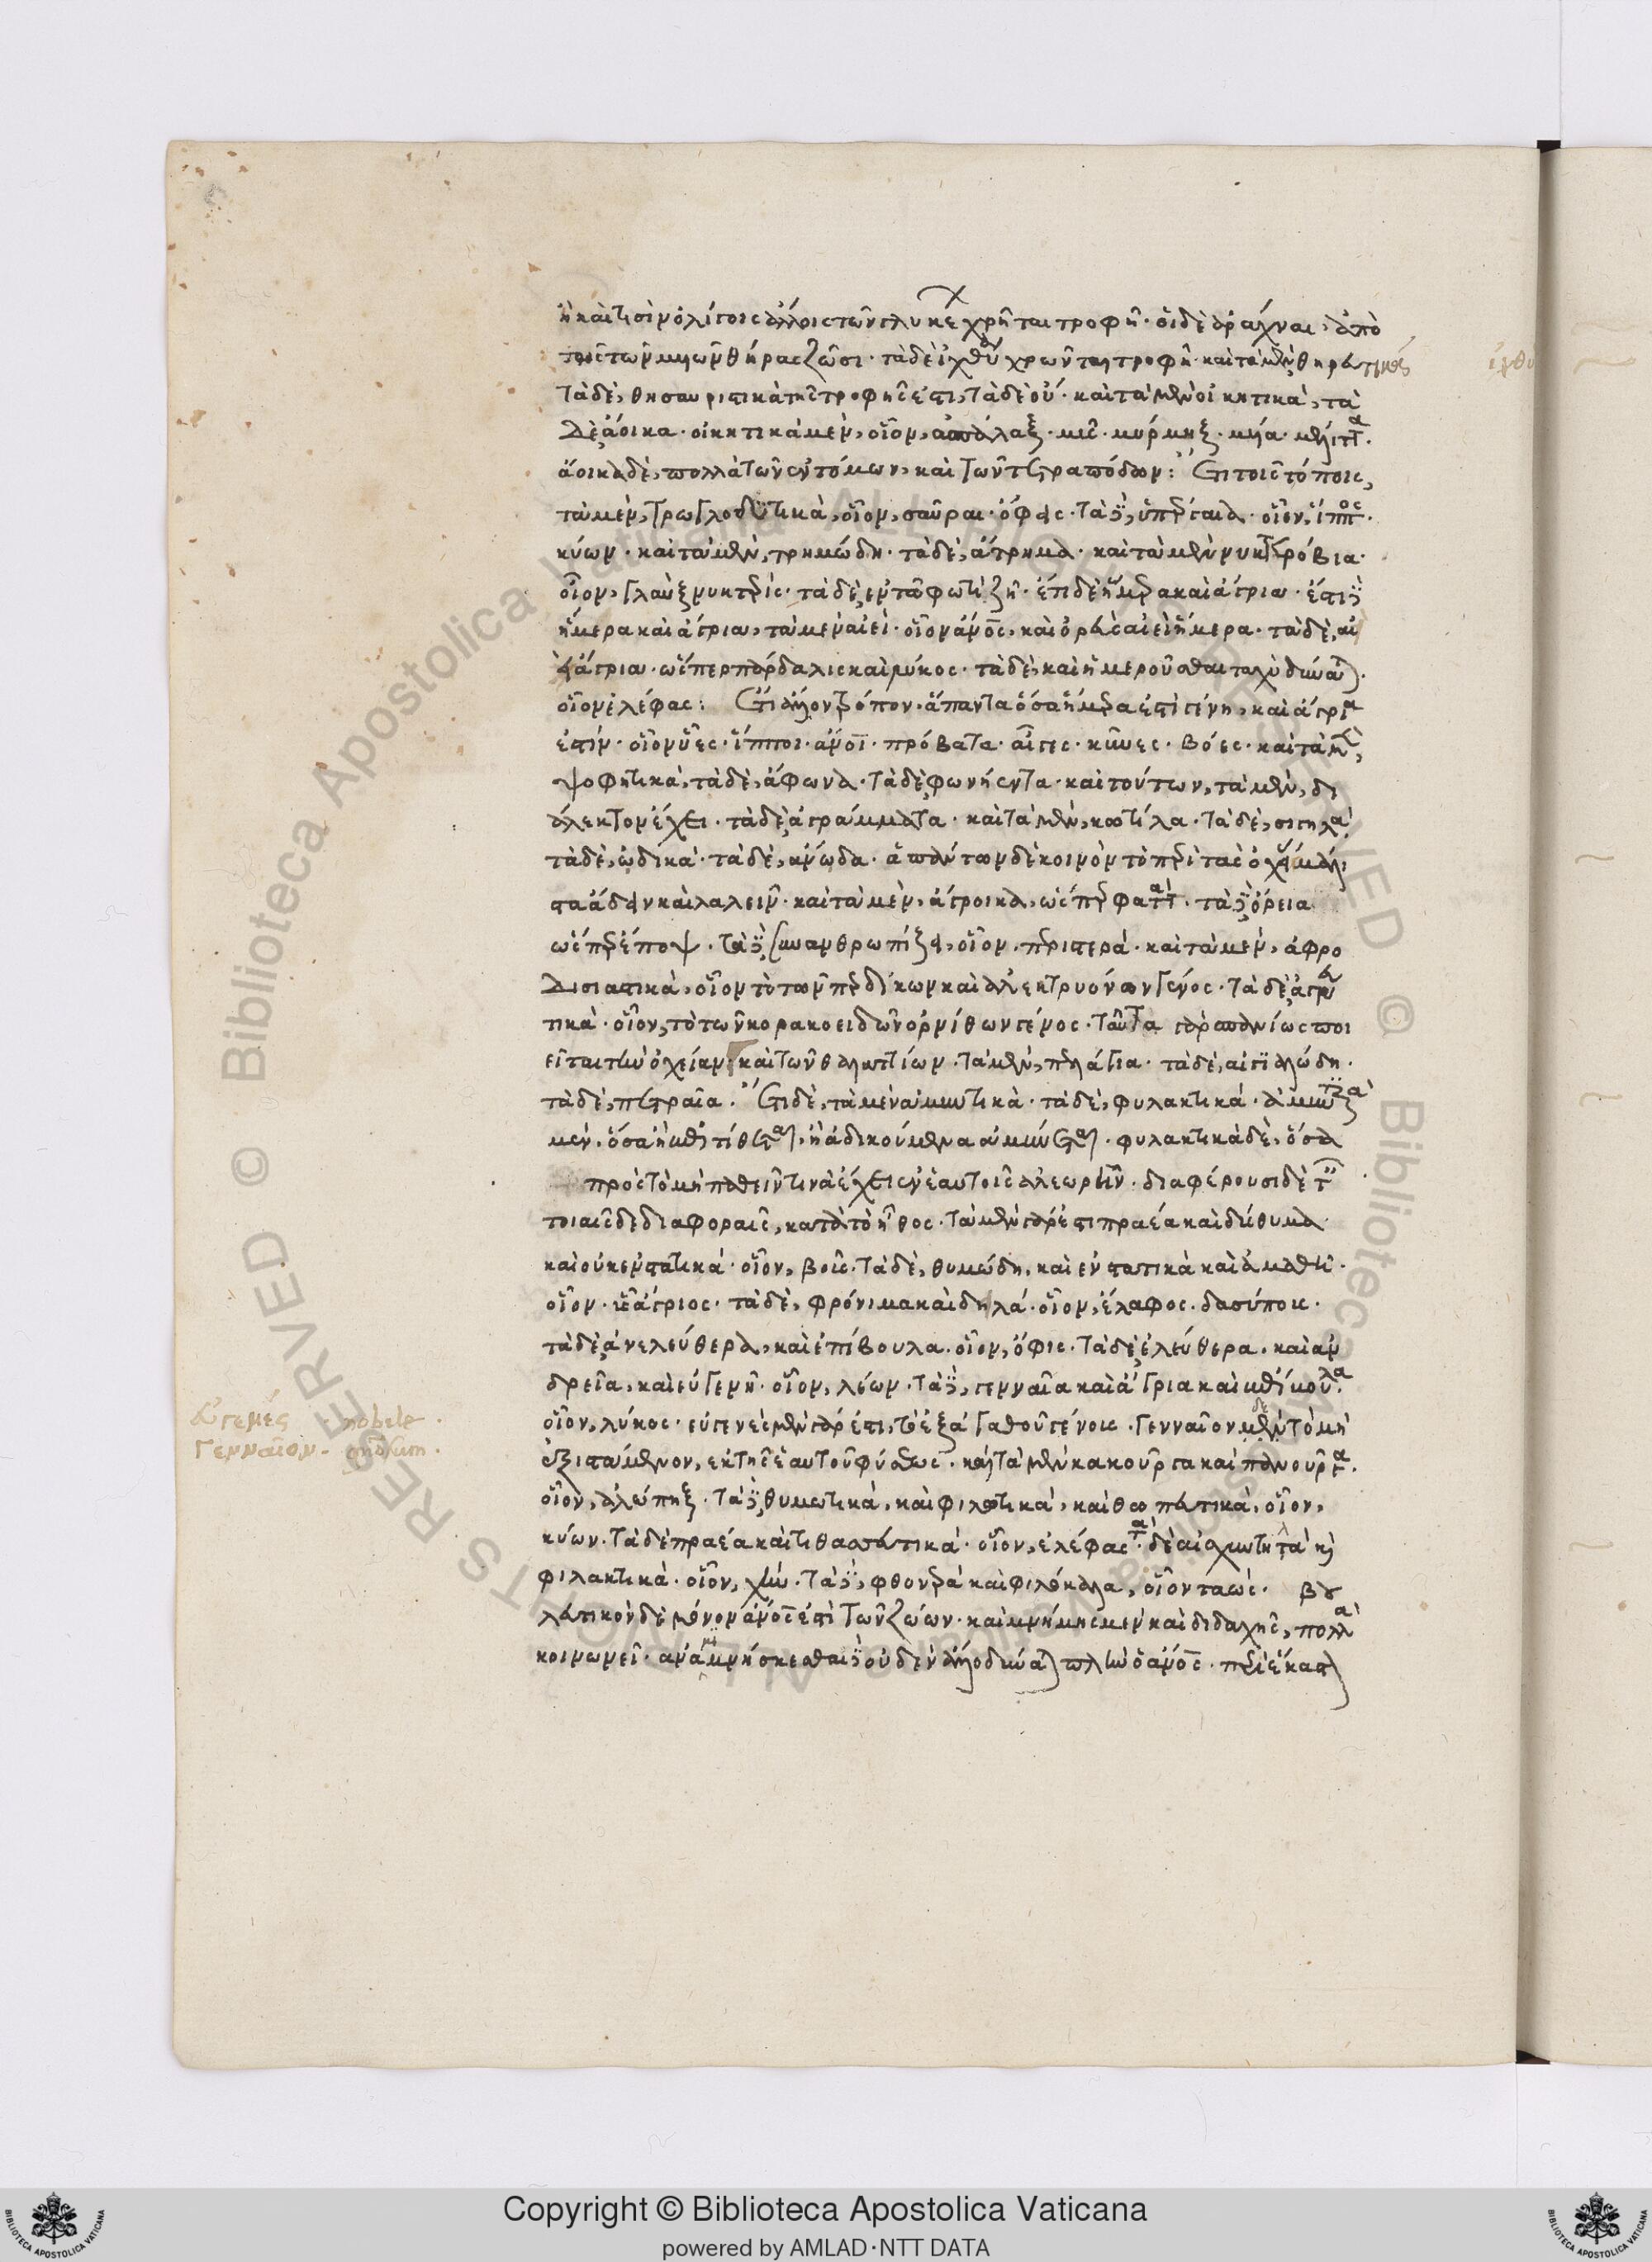 ἢ καί τισιν ὀλίγοις ἄλλοις τῶν γλυκέ χρῆται τροφῇ· οἱ δὲ ἀράχναι, ἀπὸ
τῆς τῶν μυιῶν θήρας ζῶσι· τὰ δὲ ἰχθύ χρῶνται τροφῇ· καὶ τὰ μὲν θηρευτικὰ
τὰ δὲ, θησαυριστικὰ τῆς τροφῆς ἐστι, τὰ δὲ οὔ· καὶ τὰ μὲν οἰκητικὰ, τὰ
δὲ ἄοικα· οἰκητικὰ μὲν, οἷον, ἀσπάλαξ· μῦς· μύρμηξ· μυῖα· μέλιττα·
ἄοικα δὲ, πολλὰ τῶν ἐντόμων, καὶ τῶν τετραπόδων: Ἔτι τοῖς τόποις,
τὰ μὲν, τρωγλοδυτικὰ, οἷον, σαῦραι· ὄφεις· τὰ δὲ, ὑπέργαια· οἷον, ἵππος·
κύων· καὶ τὰ μὲν, τρημώδη· τὰ δὲ, ἄτρημα· καὶ τὰ μὲν νυκτερόβια·
οἷον, γλαὺξ νυκτερίς· τὰ δὲ, ἐν τῷ φωτὶ ζῇ· ἔτι δὲ ἥμερα καὶ ἄγρια· ἔτι δὲ
ἥμερα καὶ ἄγρια, τὰ μὲν αἰεί· οἷον ἄνος, καὶ ὀρεὺς αἰεὶ ἥμερα· τὰ δὲ, αἰ
εὶ ἄγρια· ὥσπερ πάρδαλις καὶ λύκος· τὰ δὲ καὶ ἡμεροῦσθαι ταχὺ δύναται·
οἷον ἐλέφας: Ἔτι ἄλλον τρόπον· ἅπαντα ὅσα ἥμερα ἐστὶ γένη, καὶ ἄγρια
ἐστίν· οἷον ὗες· ἵπποι· ἄνοι· πρόβατα· αἶγες· κύνες· βόες· καὶ τὰ μὲν,
ψοφητικὰ, τὰ δὲ, ἄφωνα· τὰ δὲ φωνήεντα· καὶ τούτων, τὰ μὲν, δι
άλεκτον ἔχει· τὰ δὲ ἀγράμματα· καὶ τὰ μὲν, κωτίλα· τὰ δὲ, σιγηλά·
τὰ δὲ, ᾠδικά· τὰ δὲ, ἄνῳδα· ἁπάντων δὲ κοινὸν τὸ περὶ τὰς ὀχείας μάλι
στα ᾄδειν καὶ λαλεῖν· καὶ τὰ μὲν, ἄγροικα, ὥσπερ φάττα· τὰ δὲ ὄρεια
ὥσπερ ἔποψ· τὰ δὲ, συνανθρωπίζει, οἷον, περιστερά· καὶ τὰ μὲν, ἀφρο
δισιαστικὰ, οἷον τὸ τῶν περδίκων καὶ ἀλεκτρυόνων γένος· τὰ δὲ ἁγνευ
τικὰ· οἷον, τὸ τῶν κορακοειδῶν ὀρνίθων γένος· ταῦτα γὰρ σπανίως ποι
εῖται τὴν ὀχείαν· καὶ τῶν θαλαττίων· τὰ μὲν, πελάγια· τὰ δὲ, αἰγιαλώδη·
τὰ δὲ, πετραῖα· Ἔτι δὲ, τὰ μὲν ἀμυντικὰ· τὰ δὲ, φυλακτικά· ἀμυντικὰ
μὲν, ὅσα ἢ ἐπιτίθεται, ἢ ἀδικούμενα ἀμύνεται· φυλακτικὰ δὲ, ὅσα
πρὸς τὸ μὴ παθεῖν τινὰ ἔχει ἐν ἑαυτοῖς ἀλεωρὴν· διαφέρουσι δὲ ταῖς
τοιαῖσδε διαφοραῖς, κατὰ τὸ ἦθος· τὰ μὲν γάρ ἐστι πραέα καὶ δύσθυμα
καὶ οὐκ ἐνστατικά· οἷον, βοῦς· τὰ δὲ, θυμώδη, καὶ ἐνστατικὰ καὶ ἀμαθῆ·
οἷον· ὗς ἄγριος· τὰ δὲ, φρόνιμα καὶ δειλά· οἷον, ἔλαφος· δασύπους·
τὰ δὲ ἀνελεύθερα, καὶ ἐπίβουλα· οἷον, ὄφις· τὰ δὲ ἐλεύθερα· καὶ ἀν
δρεῖα, καὶ εὐγενῆ· οἷον, λέων· τὰ δὲ, γενναῖα καὶ ἄγρια καὶ ἐπίβουλα·
οἷον, λύκος· εὐγενὲς μὲν γάρ ἐστι, τὸ ἐξ ἀγαθοῦ γένους· γενναῖον δὲ τὸ μὴ
ἐξιστάμενον, ἐκ τῆς ἑαυτοῦ φύσεως· καὶ τὰ μὲν κακοῦργα καὶ πανοῦργα·
οἷον, ἀλώπηξ· τὰ δὲ θυμωτικά, καὶ φιλητικά, καὶ θωπευτικά, οἷον,
κύων· τὰ δὲ πραέα καὶ τιθασσευτικά· οἷον, ἐλέφας· τὰ δὲ αἰσχυντηλὰ καὶ
φιλακτικά· οἷον, χήν· τὰ δὲ, φθονερὰ καὶ φιλόκαλα, οἷον ταώς· βου
λευτικὸν δὲ μόνον ἄνος ἐστὶ τῶν ζώων· καὶ μνήμης μὲν καὶ διδαχῆς, πολλὰ
κοινωνεῖ· ἀναμιμνήσκεσθαι δὲ οὐδὲν ἄλλο δύναται πλὴν ὁ ἄνος· περὶ ἕκαστ
εὐγενές nobele·
γενναῖον·